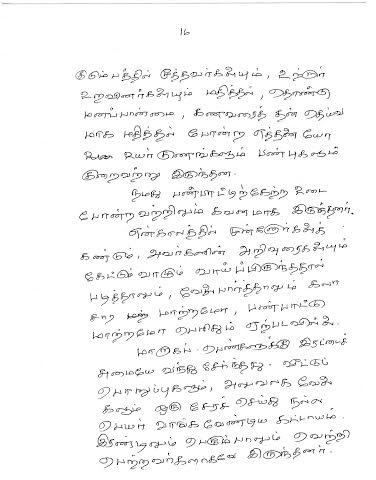 16
குடும்பத்தில் மூத்தவர்களையும், உற்றார்
உறவினர்களையும் மதித்தல், தொண்டு
மனப்பான்மை, கணவரைத் தன் தெய்வ
மாக மதித்தல் போன்ற எத்தனை யோ
உயர் குணங்களும் பண்புகளும்
நிறைவுற்று இருந்தன.
நமது பண்பாட்டிற்கேற்ற உடை
போன்றவற்றிலும் கவனமாக இருந்தனர்.
என்காலத்தில் முன்னோர்களைக்
கண்டும், அவர்களின் அறிவுரைகளையும்
கேட்டும் வாழும் வாய்ப்பிருந்ததால்
படித்தாலும், வேலைபார்த்தாலும் கலா
சார மாற்றமோ, பண்பாட்டு
மாற்றமோ பெரிதும் ஏற்படவில்லை.
மாறாகப் பெண்களுக்கு இரட்டைச்
சுமையே வந்து சேர்ந்தது. வீட்டுப்
பொறுப்புகளும், அலுவலக வேலை
களும் ஒரு சேரச் செய்து நல்ல
பெயர் வாங்க வேண்டிய கட்டாயம்.
இரண்டிலும் பெரும்பாலும் வெற்றி
பெற்றவர்களாகவே இருந்தனர்.